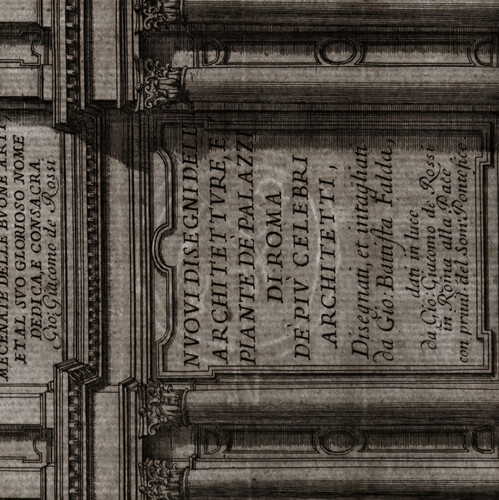 MECENATE DELLE BVONE ARTI,
ET AL SVO GLORIOSO NOME
DEDICA, E CONSACRA
Gio: Giacomo de Rossi
NVOVI DISEGNI DELL'
ARCHITETTVRE, E
PIANTE DE PALAZZI
DI ROMA
DE PIV CELEBRI
ARCHITETTI,
Disegnati, et intagliati
da Gio: Battista Falda,
dati in luce
da Gio: Giacomo de Rossi
in Roma alla Pace
con priuil. del Som. Pontefice.